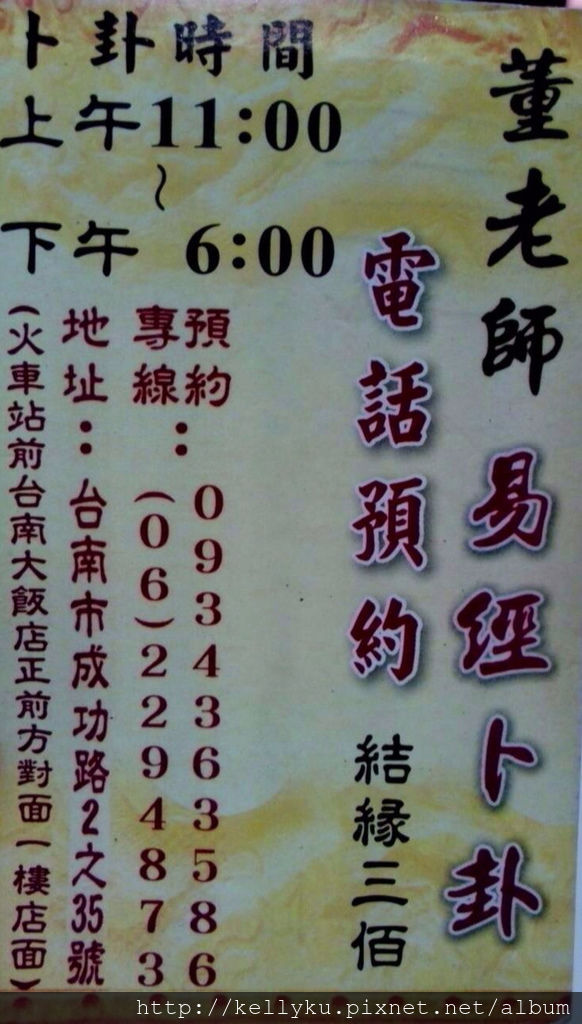 董老師 易經卜卦
電話預約 結緣三佰
卜卦時間
上午11:00
~
下午 6:00
預約專線：
0934363586
(06)2294873
地址：台南市成功路2之35號
(火車站前台南大飯店正前方對面一樓店面)
http://kellyku.pixnet.net/album